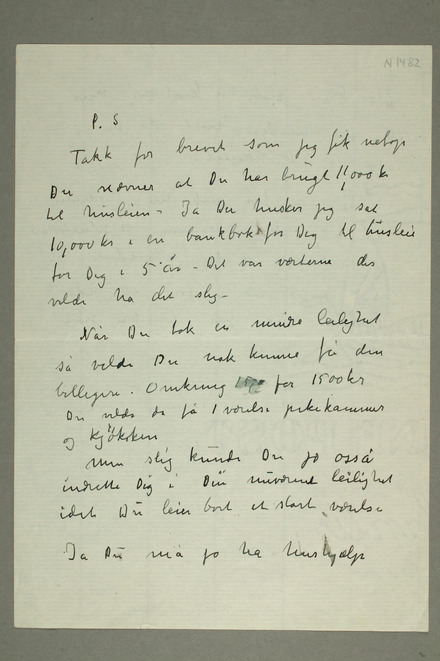 N 1482
P. S
Takk for brevet som jeg fik netop
Du nævner at Du har brugt 11,000 kr
til husleien – Ja Du husker jeg sat
10,000 kr i en bankbok for Dig til husleie
for Dig i 5 år – Det var værterne der
vilde ha det slig –
Når Du tok en mindre leilighet
så vilde Du nok kunne få den
billigere. Omkring for 1500 kr
Du vilde da få 1 værelse pikekammer
og kjøkken
Men slig kunde Du jo også
indrette Dig i Din nuværende leilighet
idet Du leier bort et stort værelse
Ja Du må jo ha hushjælp